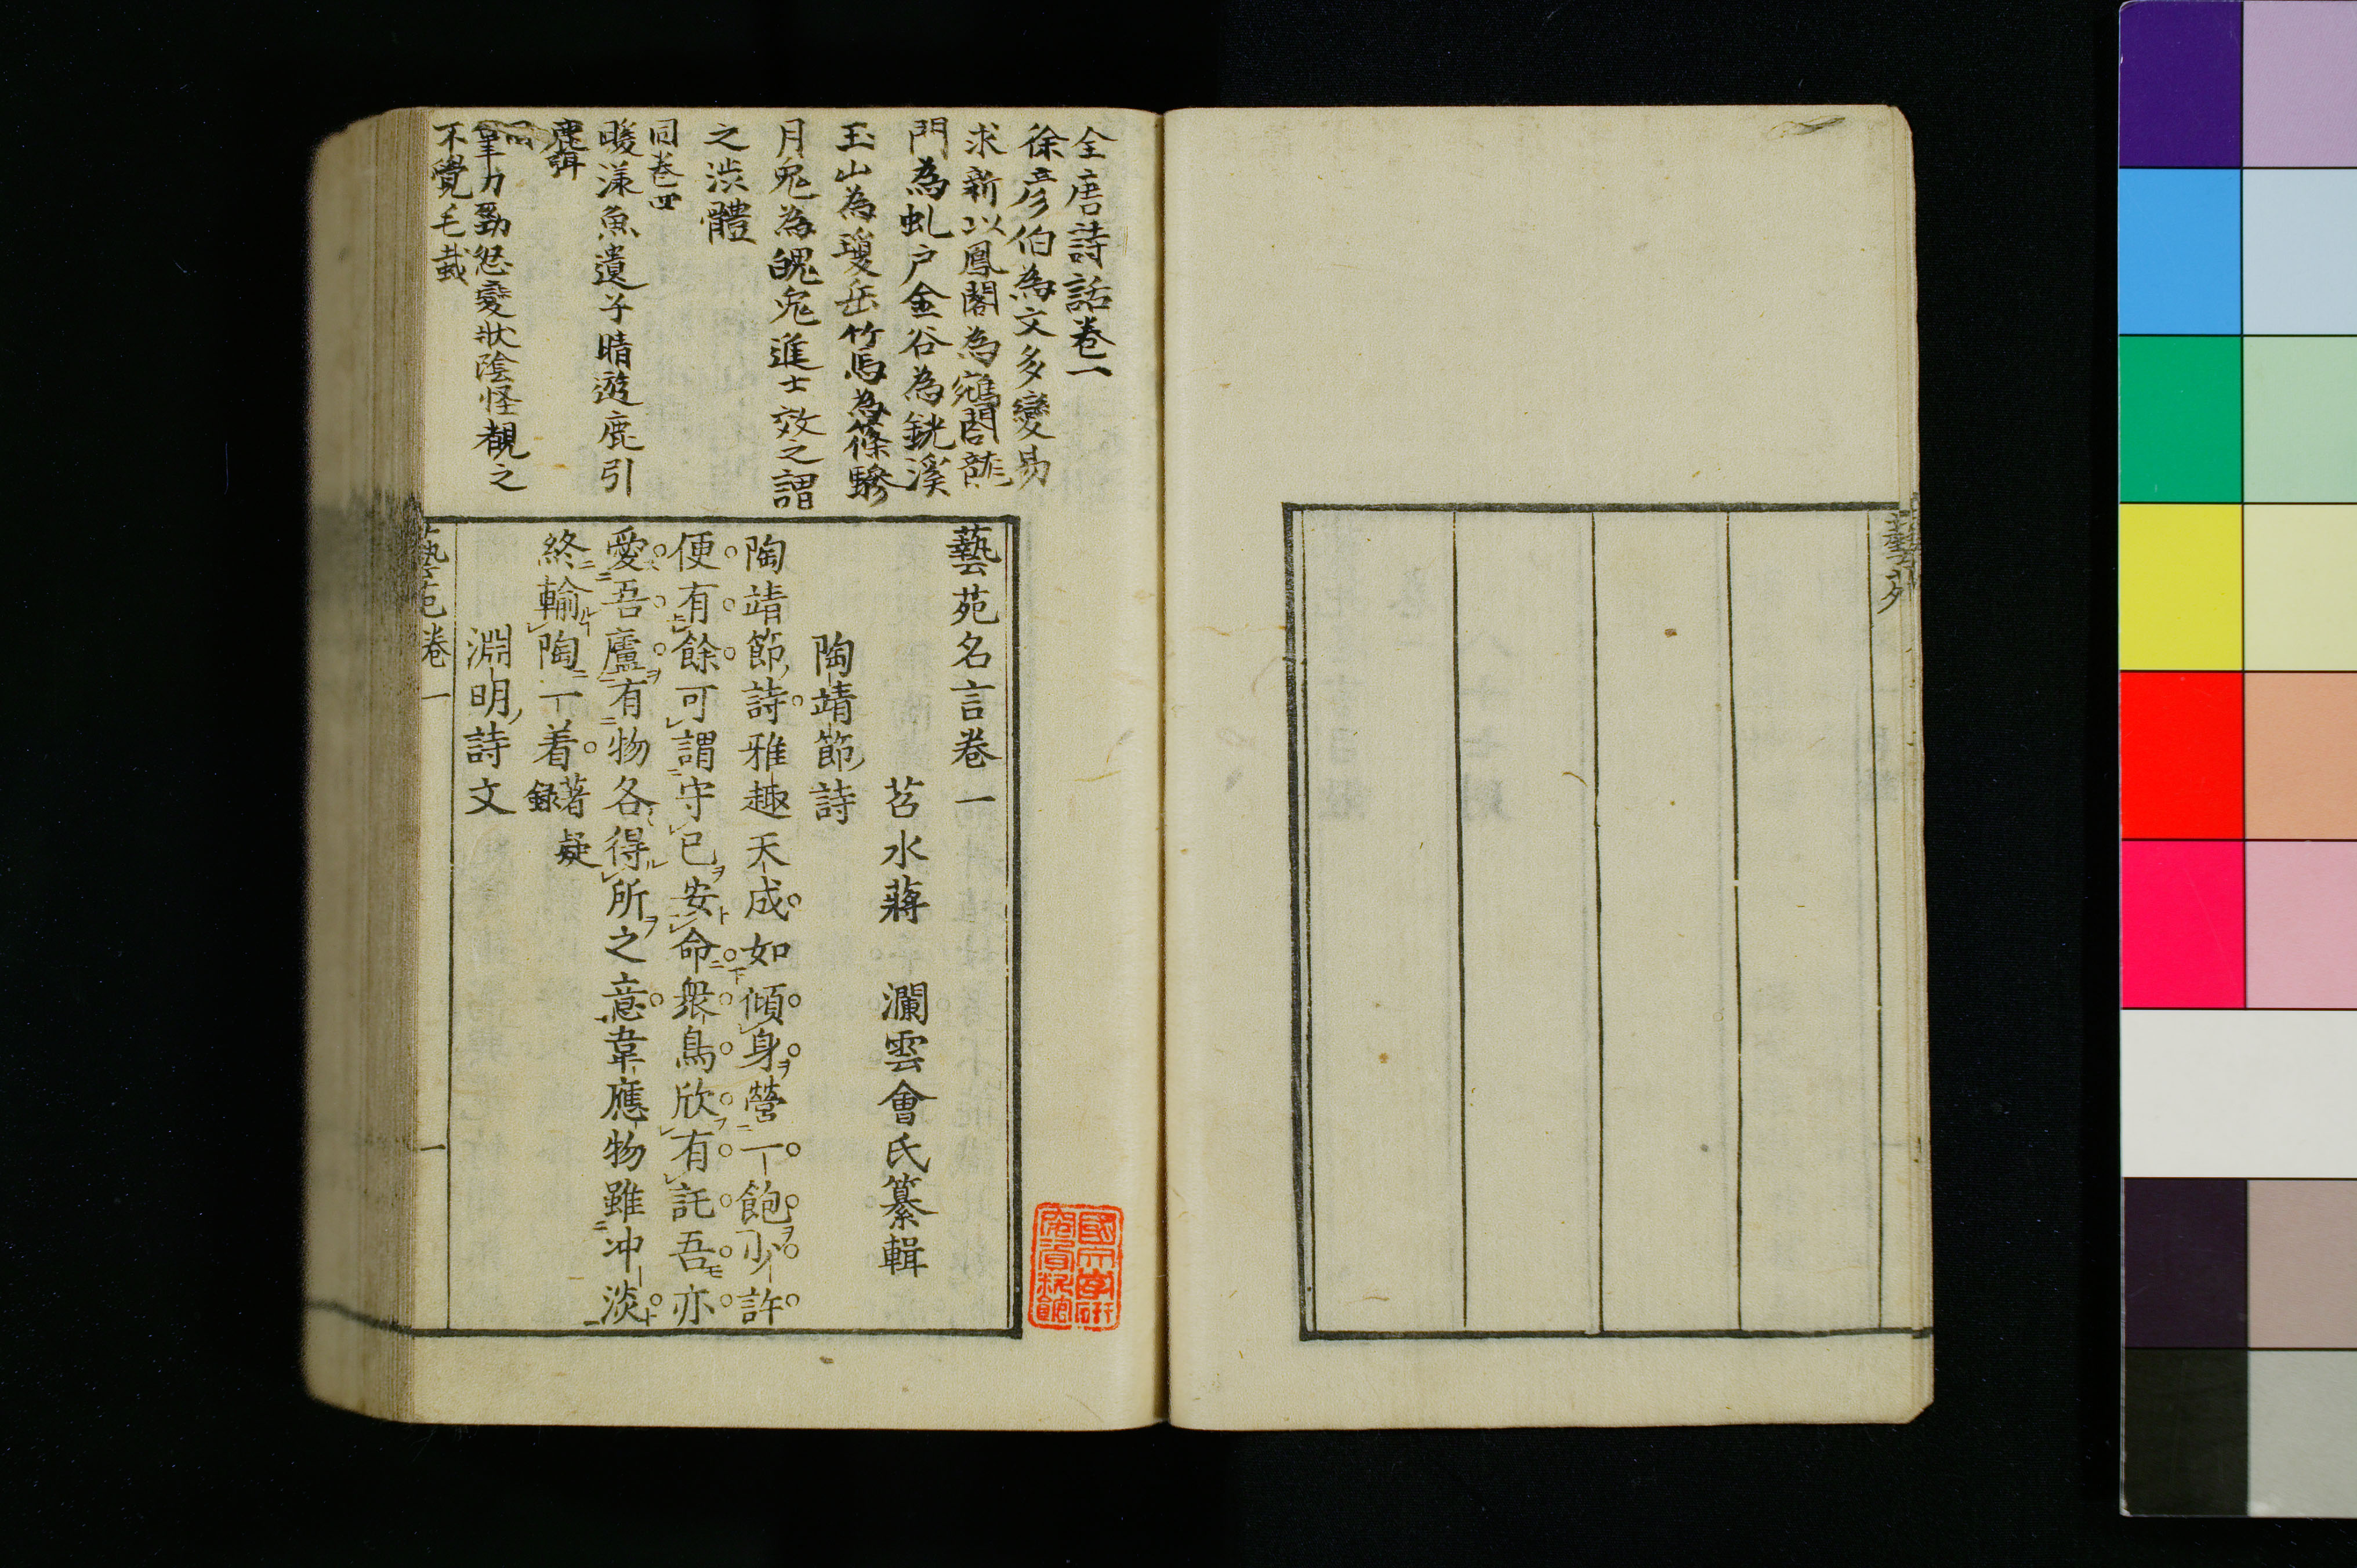 藝苑
全唐詩話卷一
徐彦伯為文多變易
求新以鳳閣為鵷閣龍
門為虬户金谷為銑溪
玉山為瓊岳竹馬為篠驂
月兔為魄兔進士效之謂
之渋體
同卷四
暖漾魚遺子晴遊鹿引
麛
筆力勁怒變狀陰怪覩之
不覺毛戴
藝苑名言卷一
苕水蔣 瀾雲會氏纂輯
陶靖節詩
陶靖節詩雅趣天成如傾身營一飽少許
便有餘可謂守已安命衆鳥欣有託吾亦
愛吾廬有物各得所之意韋應物雖冲淡
終輸陶一着 著疑録
淵明詩文
藝苑卷一 一
國文學研究資料館